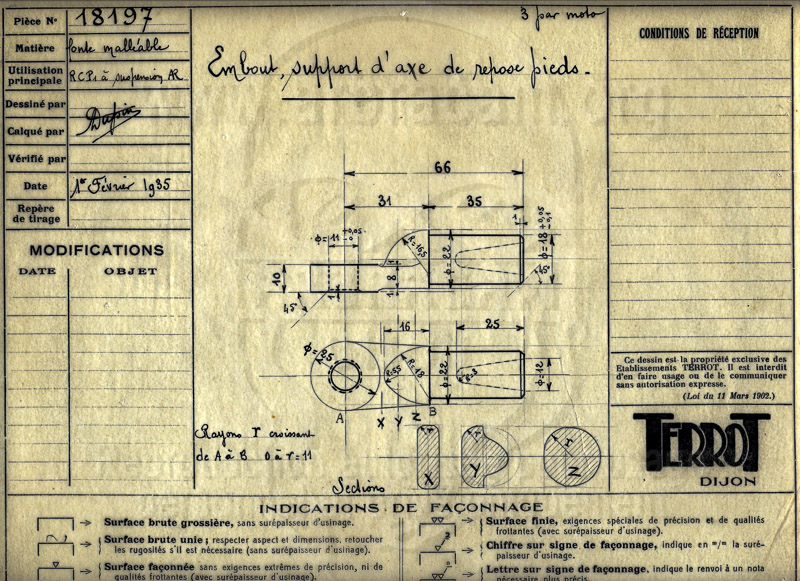 Pièce N° 18197
Matière fonte malléable
Utilisation principale R.C.P. à suspension AR
Dessiné par
Calqué par Dupin
Vérifié par
Date 1er Février 1935
Repère de tirage
MODIFICATIONS
DATE OBJET
3 par moto
Embout, support d'axe de repose pieds.
66
31 35
1
ϕ=11 +0,05 -0
R=16,5
ϕ=22
ϕ=18 +0,05 -0,1
45°
10
8
1
1
45°
16 25
ϕ=25
R=5,5
R=18
ϕ=22
R=3
ϕ=12
A B
X Y Z
Rayons r croissant
de A à B 0 à r=11
r r r
X Y Z
Sections
CONDITIONS DE RÉCEPTION
Ce dessin est la propriété exclusive des
Etablissements TERROT. Il est interdit
d'en faire usage ou de le communiquer
sans autorisation expresse.
(Loi du 11 Mars 1902.)
TERROT
DIJON
INDICATIONS DE FAÇONNAGE
Surface brute grossière, sans surépaisseur d'usinage.
Surface brute unie ; respecter aspect et dimensions, retoucher
les rugosités s'il est nécessaire (sans surépaisseur d'usinage).
Surface façonnée sans exigences extrêmes de précision, ni de
qualités frottantes (avec surépaisseur d'usinage).
Surface finie, exigences spéciales de précision et de qualités
frottantes (avec surépaisseur d'usinage).
Chiffre sur signe de façonnage, indique en m/m la suré-
paisseur d'usinage.
Lettre sur signe de façonnage, indique le renvoi à un nota
nécessaire plus précis.